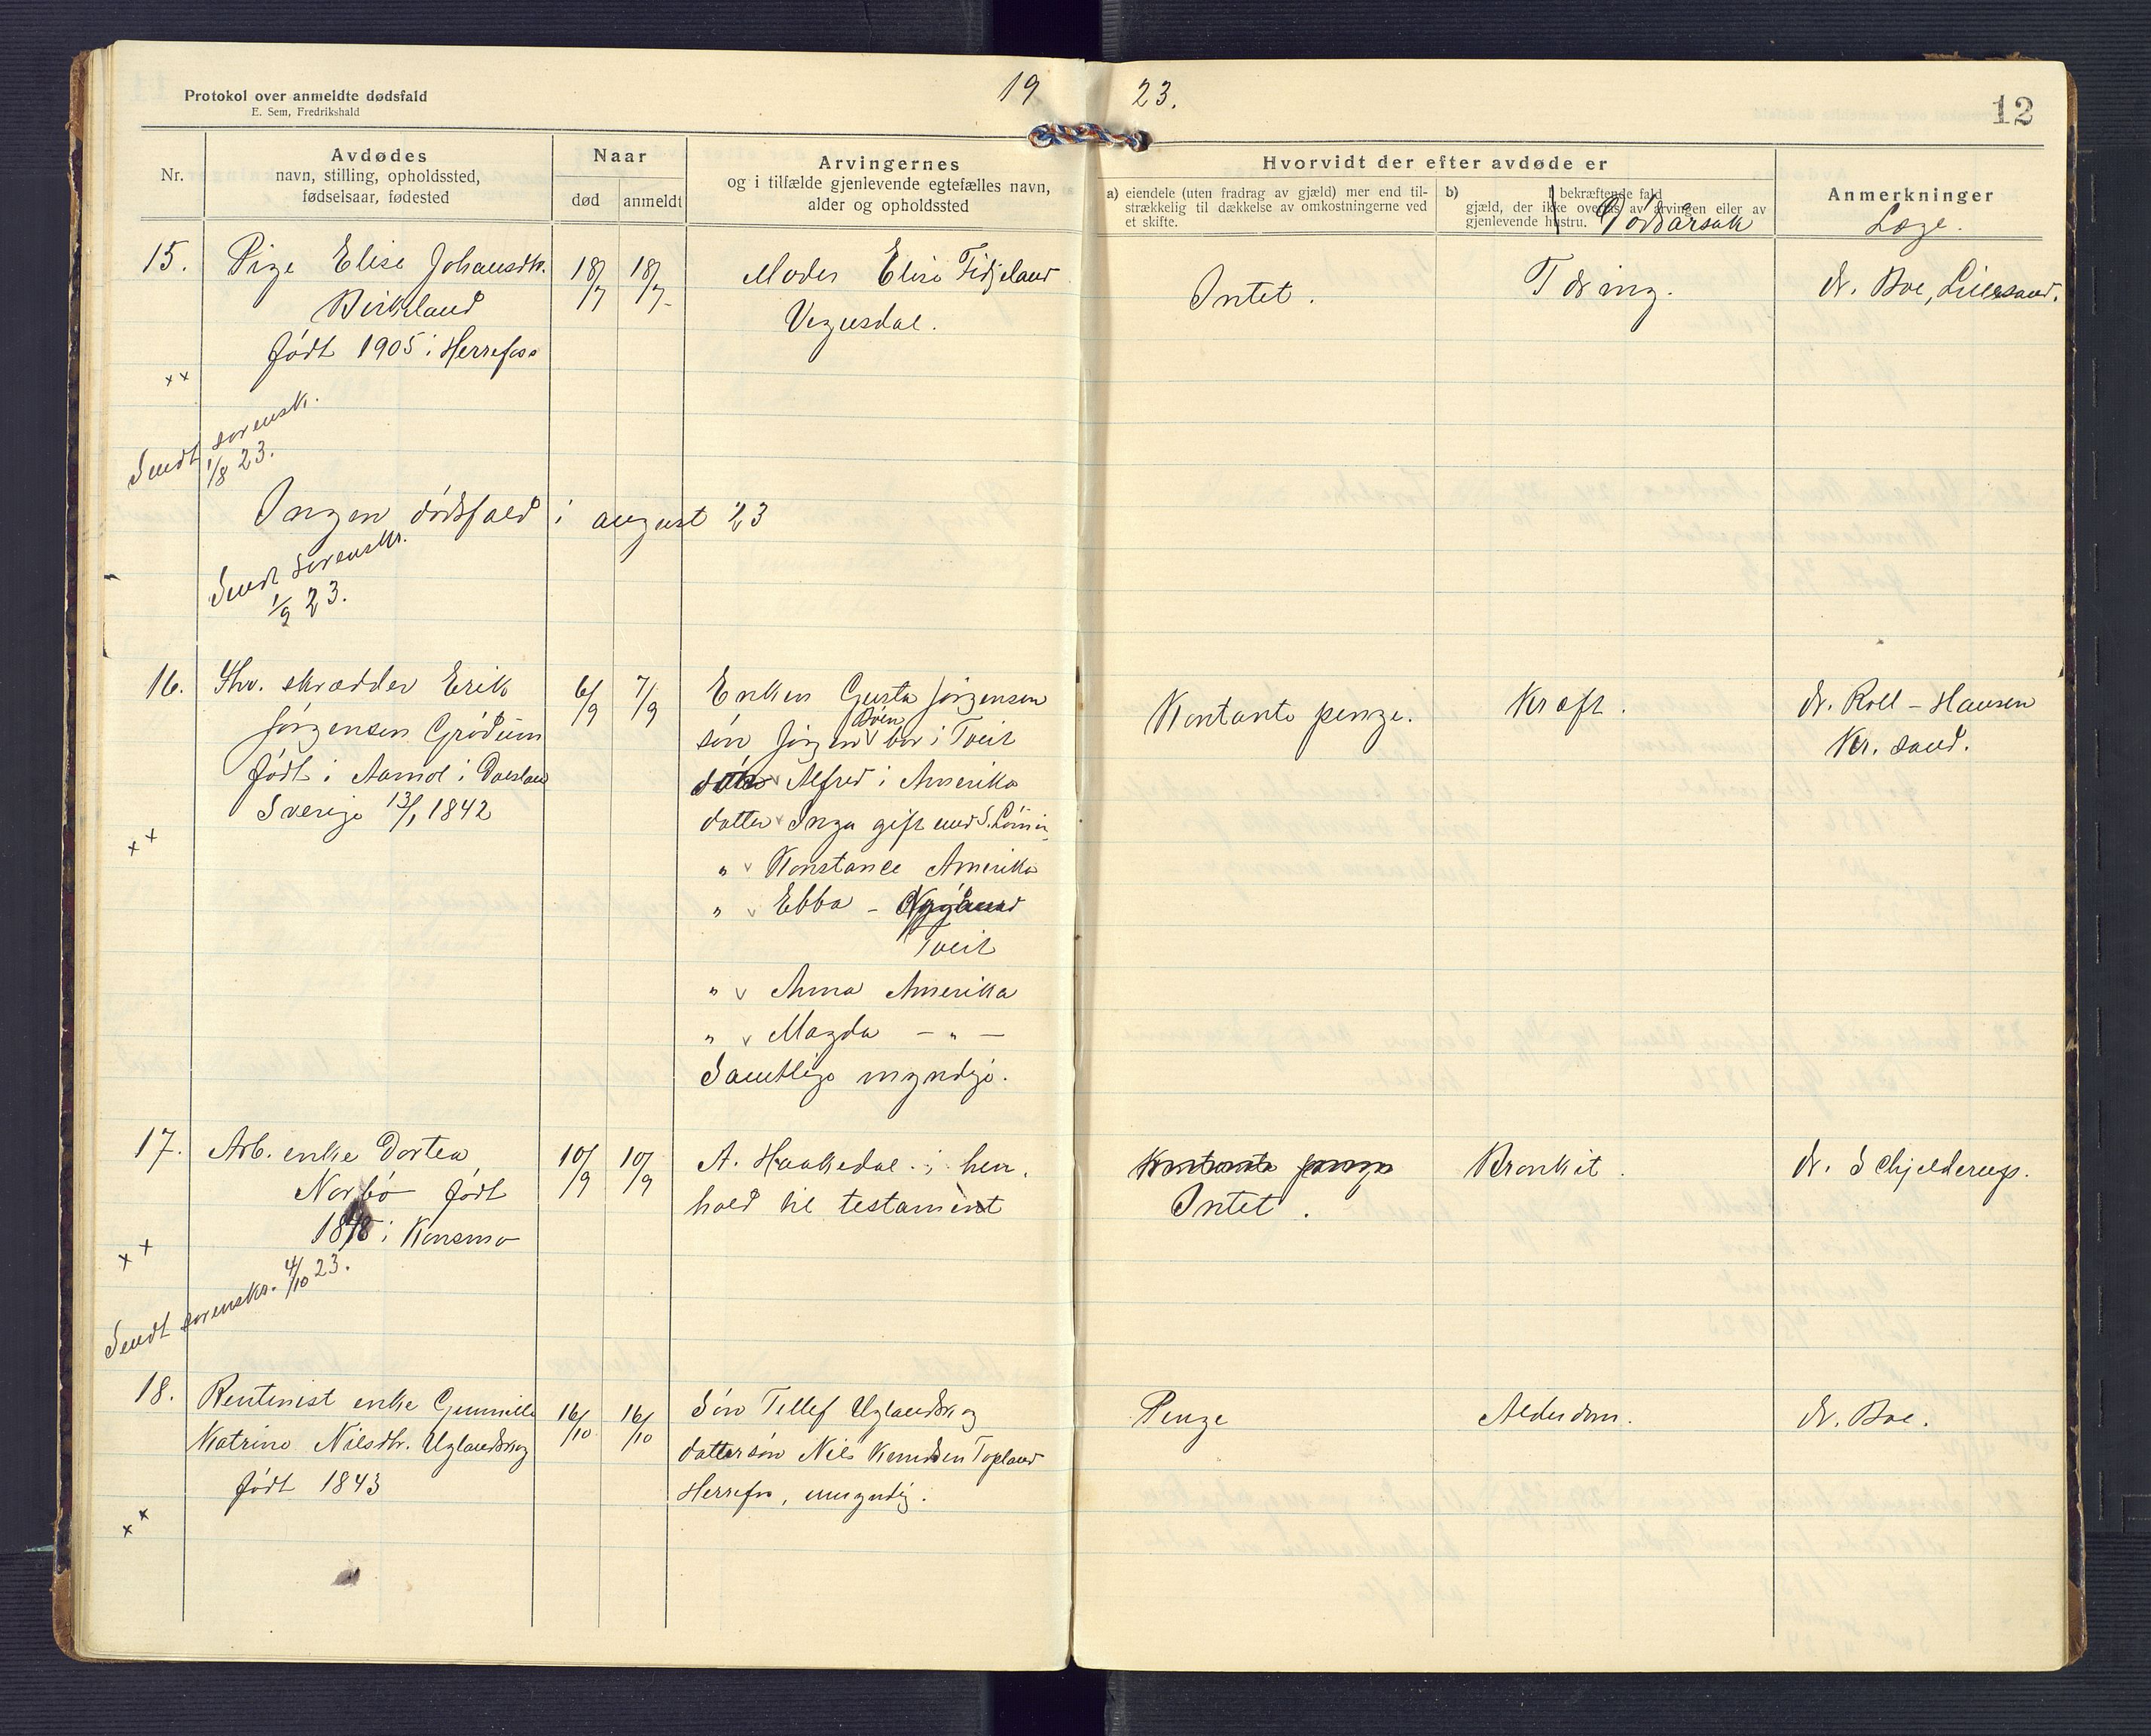 19 23.
12
Protokol over anmeldte dødsfald
E. Sem, Fredrikshald
Nr.
Avdødes
navn, stilling, opholdssted,
fødselsaar, fødested
Naar
død
anmeldt
Arvingernes
og i tilfælde gjenlevende egtefælles navn,
alder og opholdssted
Hvorvidt der efter avdøde er
a) eiendele (uten fradrag av gjæld) mer end til-
strækkelig til dækkelse av omkostningerne ved
et skifte.
b) i bekræftende fald
gjæld, der ikke overtas av arvingen eller av
gjenlevende hustru.
Dödsårsak
Anmerkninger
Læge.
15. Pige Elise Johansdtr. 18/7 18/7 Moder Elise Fidjeland Intet. Tæring. dr. Boe, Lillesand.
Birkeland Vegusdal.
født 1905 i Herrefoss
xx
Sendt sorensk.
1/8 23.
Ingen dødsfald i august 23
Sendt Sorenskr.
1/9 23.
16. Fhv. skrædder Erik 6/9 7/9 Enken Gusta Jörgensen Kontante penge. Kræft. dr. Roll-Hansen
Jörgensen Grödum søn Jörgen Sven bor i Tveit Kr. sand.
født i Aamol i Dalsland Alfred i Amerika
Sverige 13/1 1842 datter Inga gift med S.
xx
" Konstance Amerika
" Ebba -
Tveit
" Anna Amerika
" Magda - " -
Samtlige myndige.
17. Arb. enke Dortea 10/9 10/9 A. Haakedal i hen- Kontante penge Bronkit. dr. Schjelderup.
Norbö født hold til testament Intet.
18 i Konsmo
xx
Sendt sorenskr. 4/10 23.
18. Rentenist enke Gunnille 16/10 16/10 Søn Tellef Uglandskog Penge Alderdom. dr. Boe.
Katrine Nilsdtr. Uglandskog dattersøn Nils Knudsen Topland
født 1843 Herrefos, umyndig.
xx